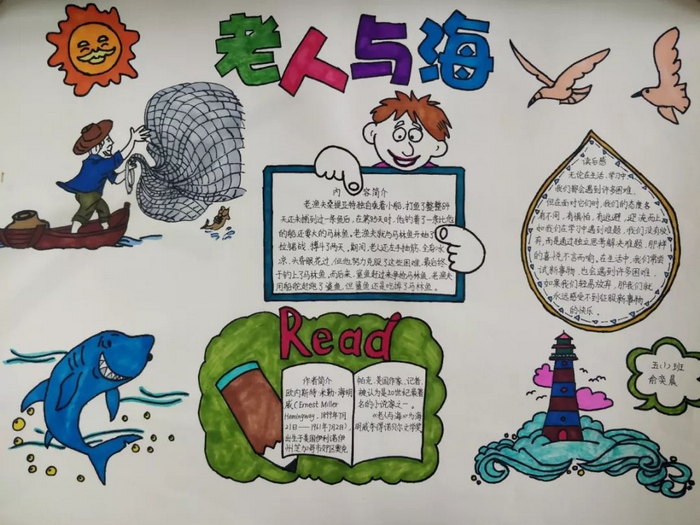 老人与海
内容简介
老渔夫桑提亚哥独自乘着小船，打鱼了整整84
天还未捕到过一条鱼后，在第85天时，他钓着了一条比他
的船还要大的马林鱼。老渔夫就与马林鱼开始了
拉锯战，搏斗了两天，期间，老人左手抽筋、全身冰
凉、头昏眼花过，但他努力克服了这些困难，最后终
于钓上了马林鱼。而后来，鲨鱼赶过来争抢马林鱼，老渔夫
用船舵赶跑了鲨鱼，但鲨鱼还是吃掉了马林鱼。
读后感
无论在生活、学习中，
我们都会遇到许多困难，
但在面对它们时，我们的态度各
有不同，有惧怕，有逃避，还有迎难而上
如我们在学习中遇到难题，我们没有放
弃，而是通过独立思考解决难题，那种
的喜悦不言而喻。在生活中，我们常尝
试新事物，也会遇到许多困难，
如果我们轻易放弃，那我们就
永远感受不到征服新事物
的快乐。
Read
作者简介
欧内斯特·米勒·海明
威（Ernest Miller
Hemingway，1899年7月
21日——1961年7月2日），
出生于美国伊利诺伊
州芝加哥市郊区奥克
帕克，美国作家、记者，
被认为是20世纪最著
名的小说家之一。
《老人与海》为海
明威夺得诺贝尔文学奖
五(1)班
俞奕晨